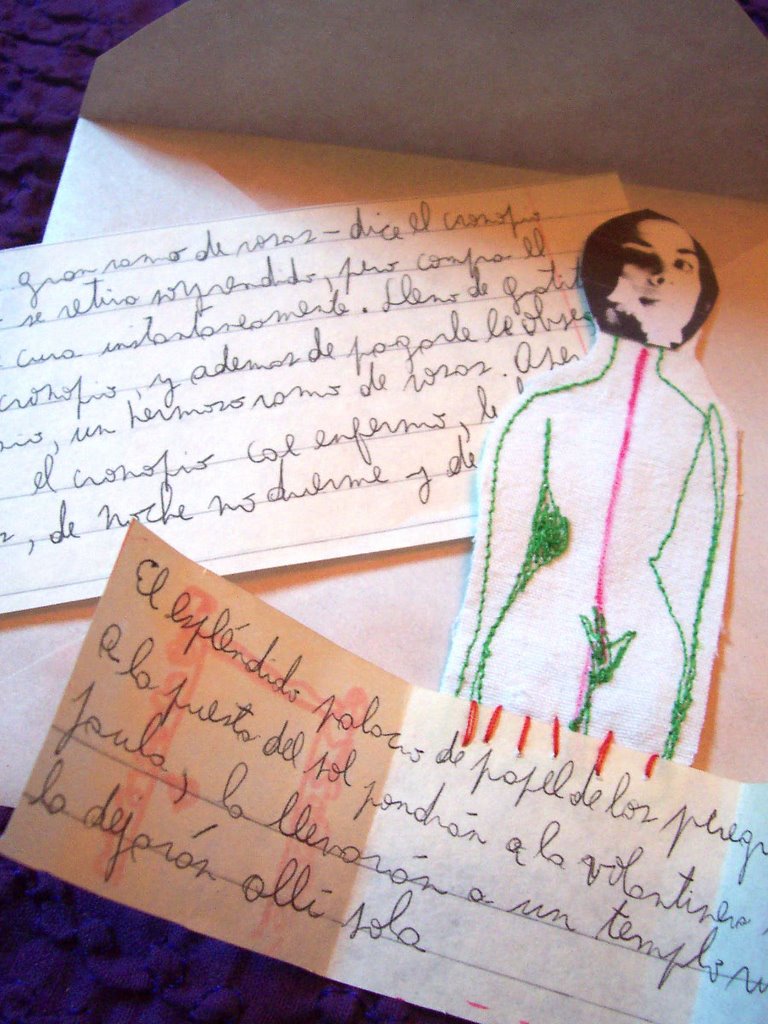 gran ramo de rosas – dice el cronopio
se retira sorprendido, pero compra el
cura instantáneamente. Lleno de gratit
cronopio, y además de pagarle le obse
un hermoso ramo de rosas. Apen
el cronopio cae enfermo, le
, de noche no duerme y de
El espléndido palacio de papel de los peregr
A la puesta del sol pondrán a la volantinera
jaula, la llevarán a un templo
la dejarán allí sola